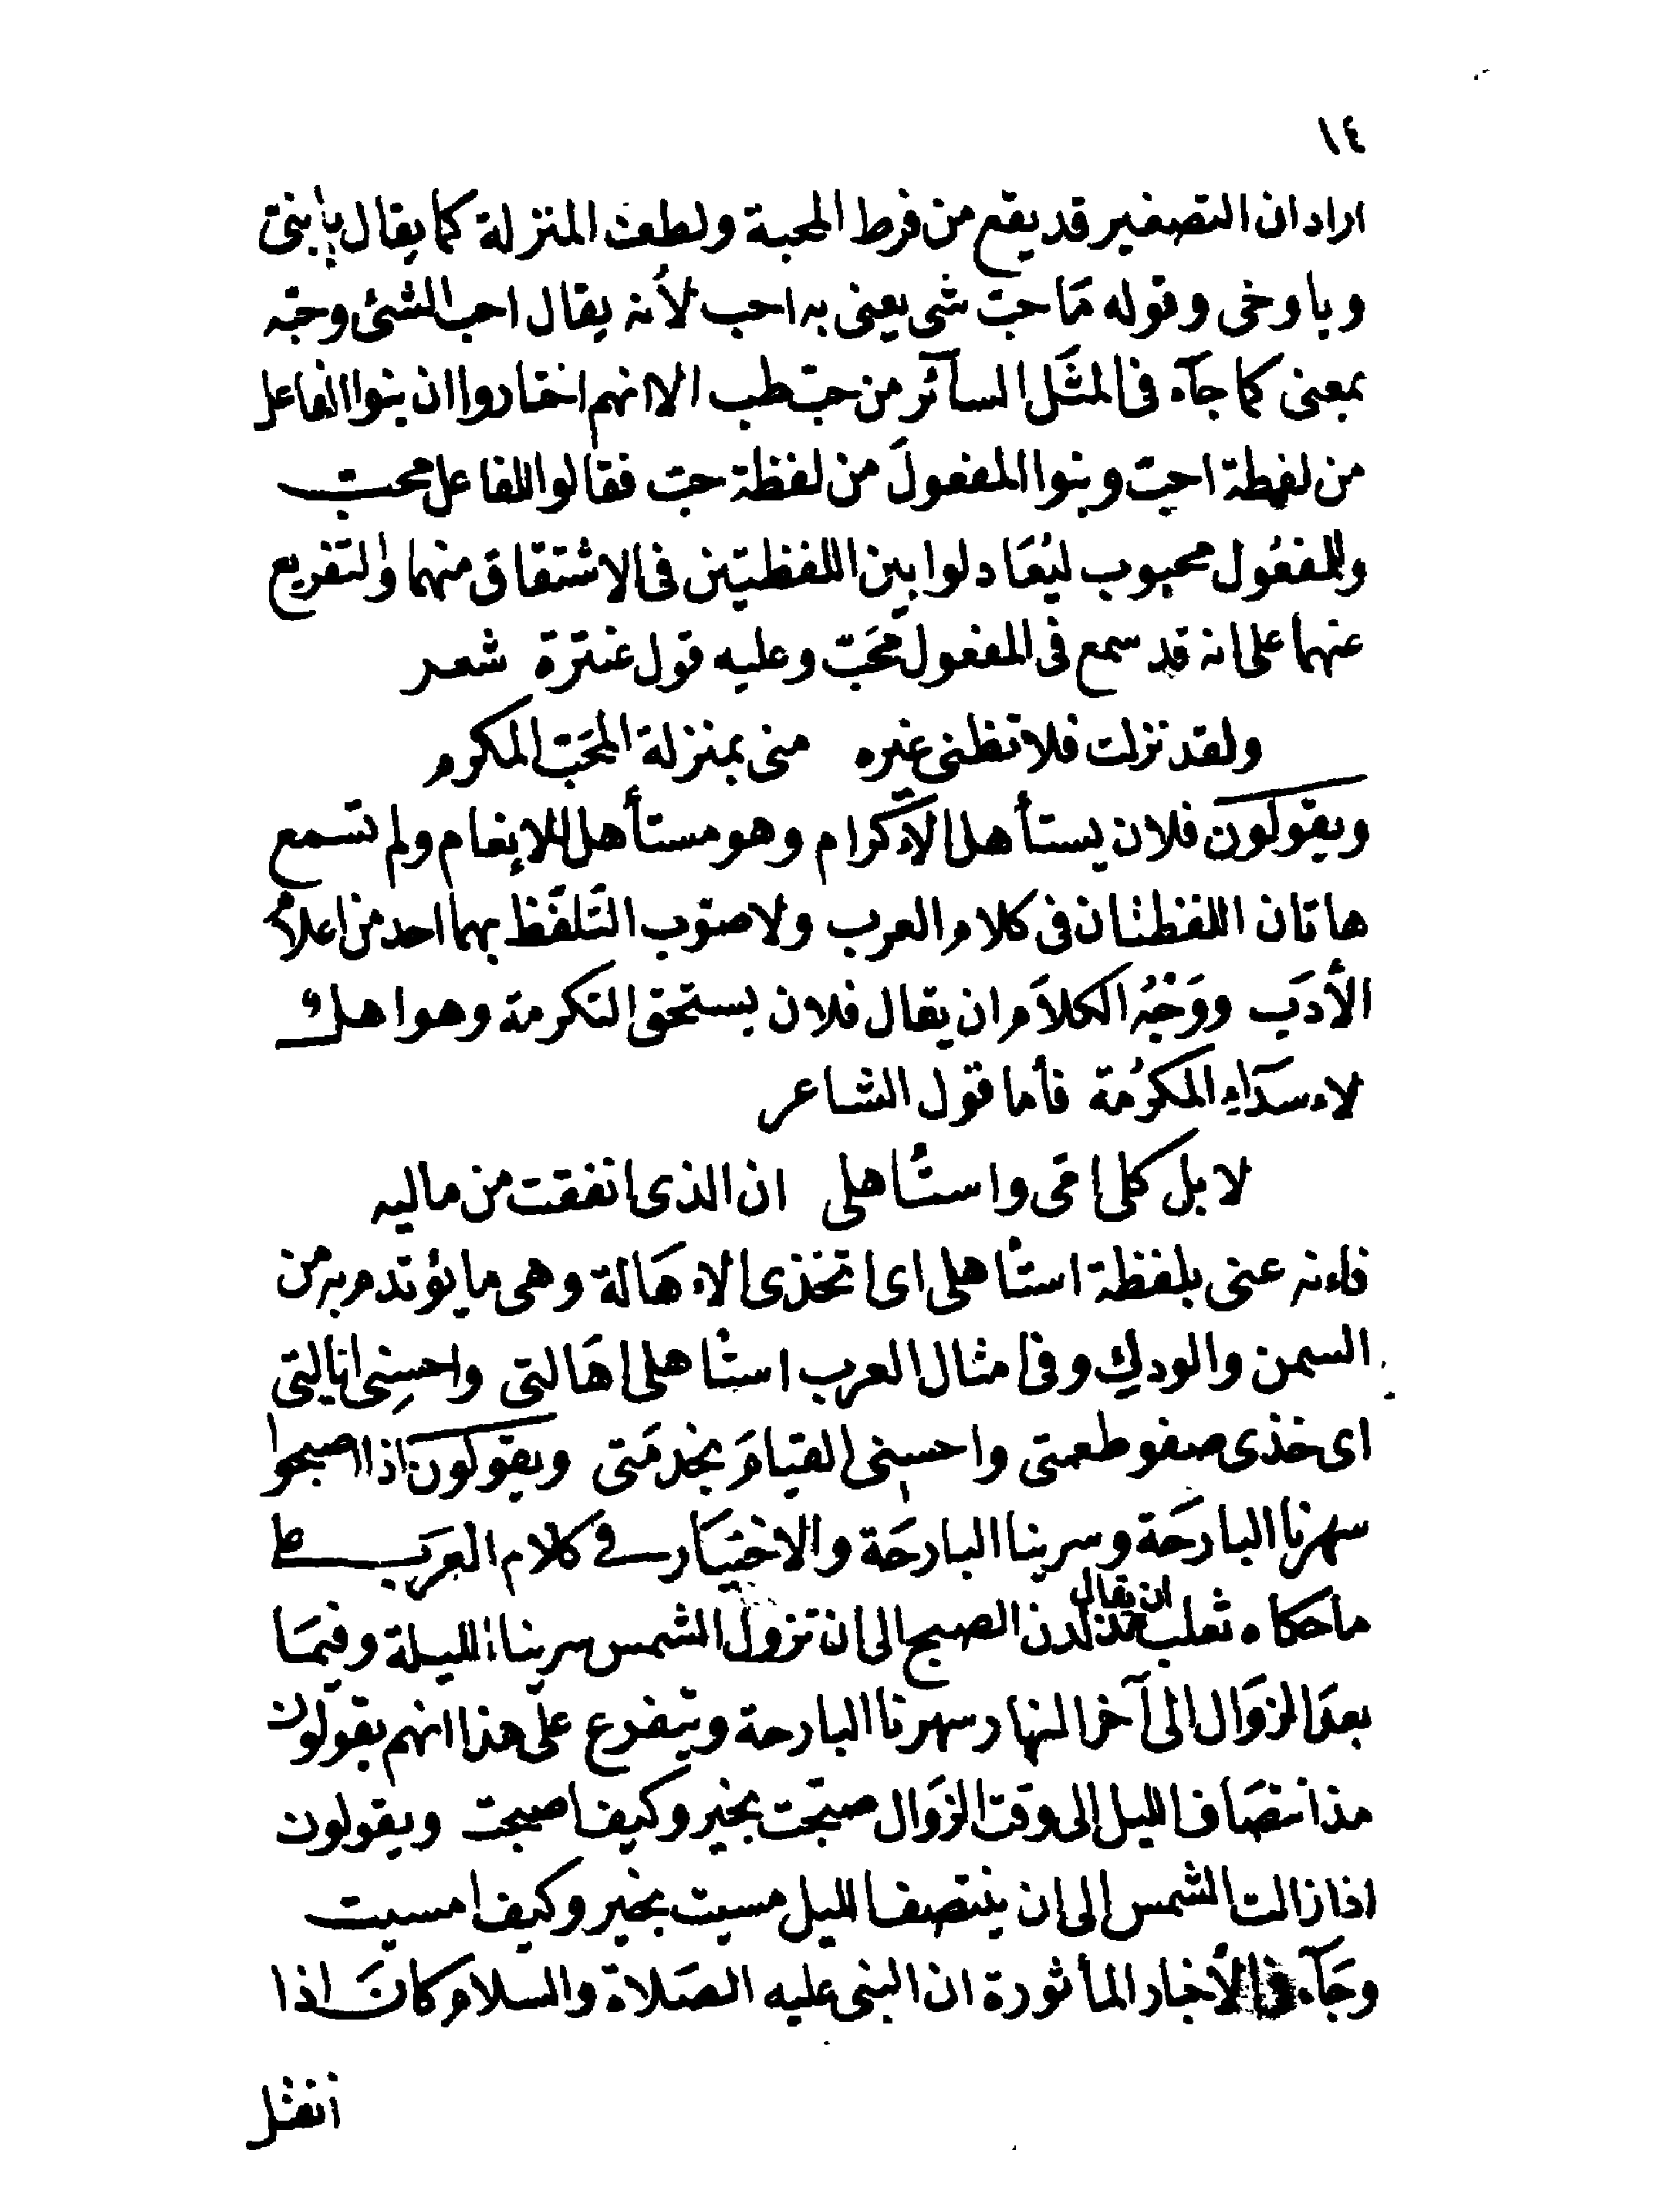 ١٤
اراد ان التصغير قد يقع من فرط المحبة ولطف المنزلة كما يقال يا بنى
ويا وخى وقوله مَا حبّ شى يعنى به احب لأنه يقال احب الشئ وحبّه
بمعنى كما جآء فى المثَل السآئر من حبّ طب الا انهم اختاروا ان بنوا الفاعل
من لفظة احبّ وبنوا المفعولَ من لفظة حبّ فقالوا للفاعل محبّ
وللمفعُول محبوب ليُعَادلوا بين اللفظتين فى الاشتقاق منهما والتفريع
عنهما على انه قد سمع فى المفعول مُحَبّ وعليه قول عنترة شعر
ولقد نزلت فلا تظنى غيره منى بمنزلة المحَبّ المكرم
ويقولون فلان يستأهل الاءكرام وهو مستأهل للإنعام ولم تسمع
هاتان اللفظتان فى كلام العرب ولا صوّب التَلفّظ بهما احد من اعلام
الأدَب ووَجْهُ الكلاَم ان يقال فلان يستحق التكرمة وهو اهلٌ
لاءسدَاءِ المكرُمة فأما قول الشاعر
لا بل كلى امّى واستأهلى ان الذى انفقت من ماليه
فاءنه عنى بلفظة استأهلى اى اتخذى الاءهَالة وهى ما يؤتدم به من
السمن والودكِ وفى امثال العرب استأهلى اهَالتى واحسِنى ايالتى
اى خذى صفو طعمتى واحسِنى القيامَ بخدمَتى ويقولون اذا اصبحوا
سهرنا البارحَة وسرينا البارحَة والاختيَار فى كلام العَرَب على
ما حكاه ثعلب ان يقال مذ لدن الصبح الى ان تزول الشمس سرينا الليلة وفيمَا
بعدَ الزوَال الى آخر النهار سهرنا البارحة ويتفرع على هذا انهم يقولون
مذ انتصَاف الليل الى وقت الزوَال صبّحت بخير وكيف اصبحت ويقولون
اذا زالت الشمس الى ان ينتصف الليل مسيت بخير وكيف امسيت
وجَآء فى الأخبار المأثورة ان النبى عليه الصَلاة والسلام كانَ اذا
انفتل